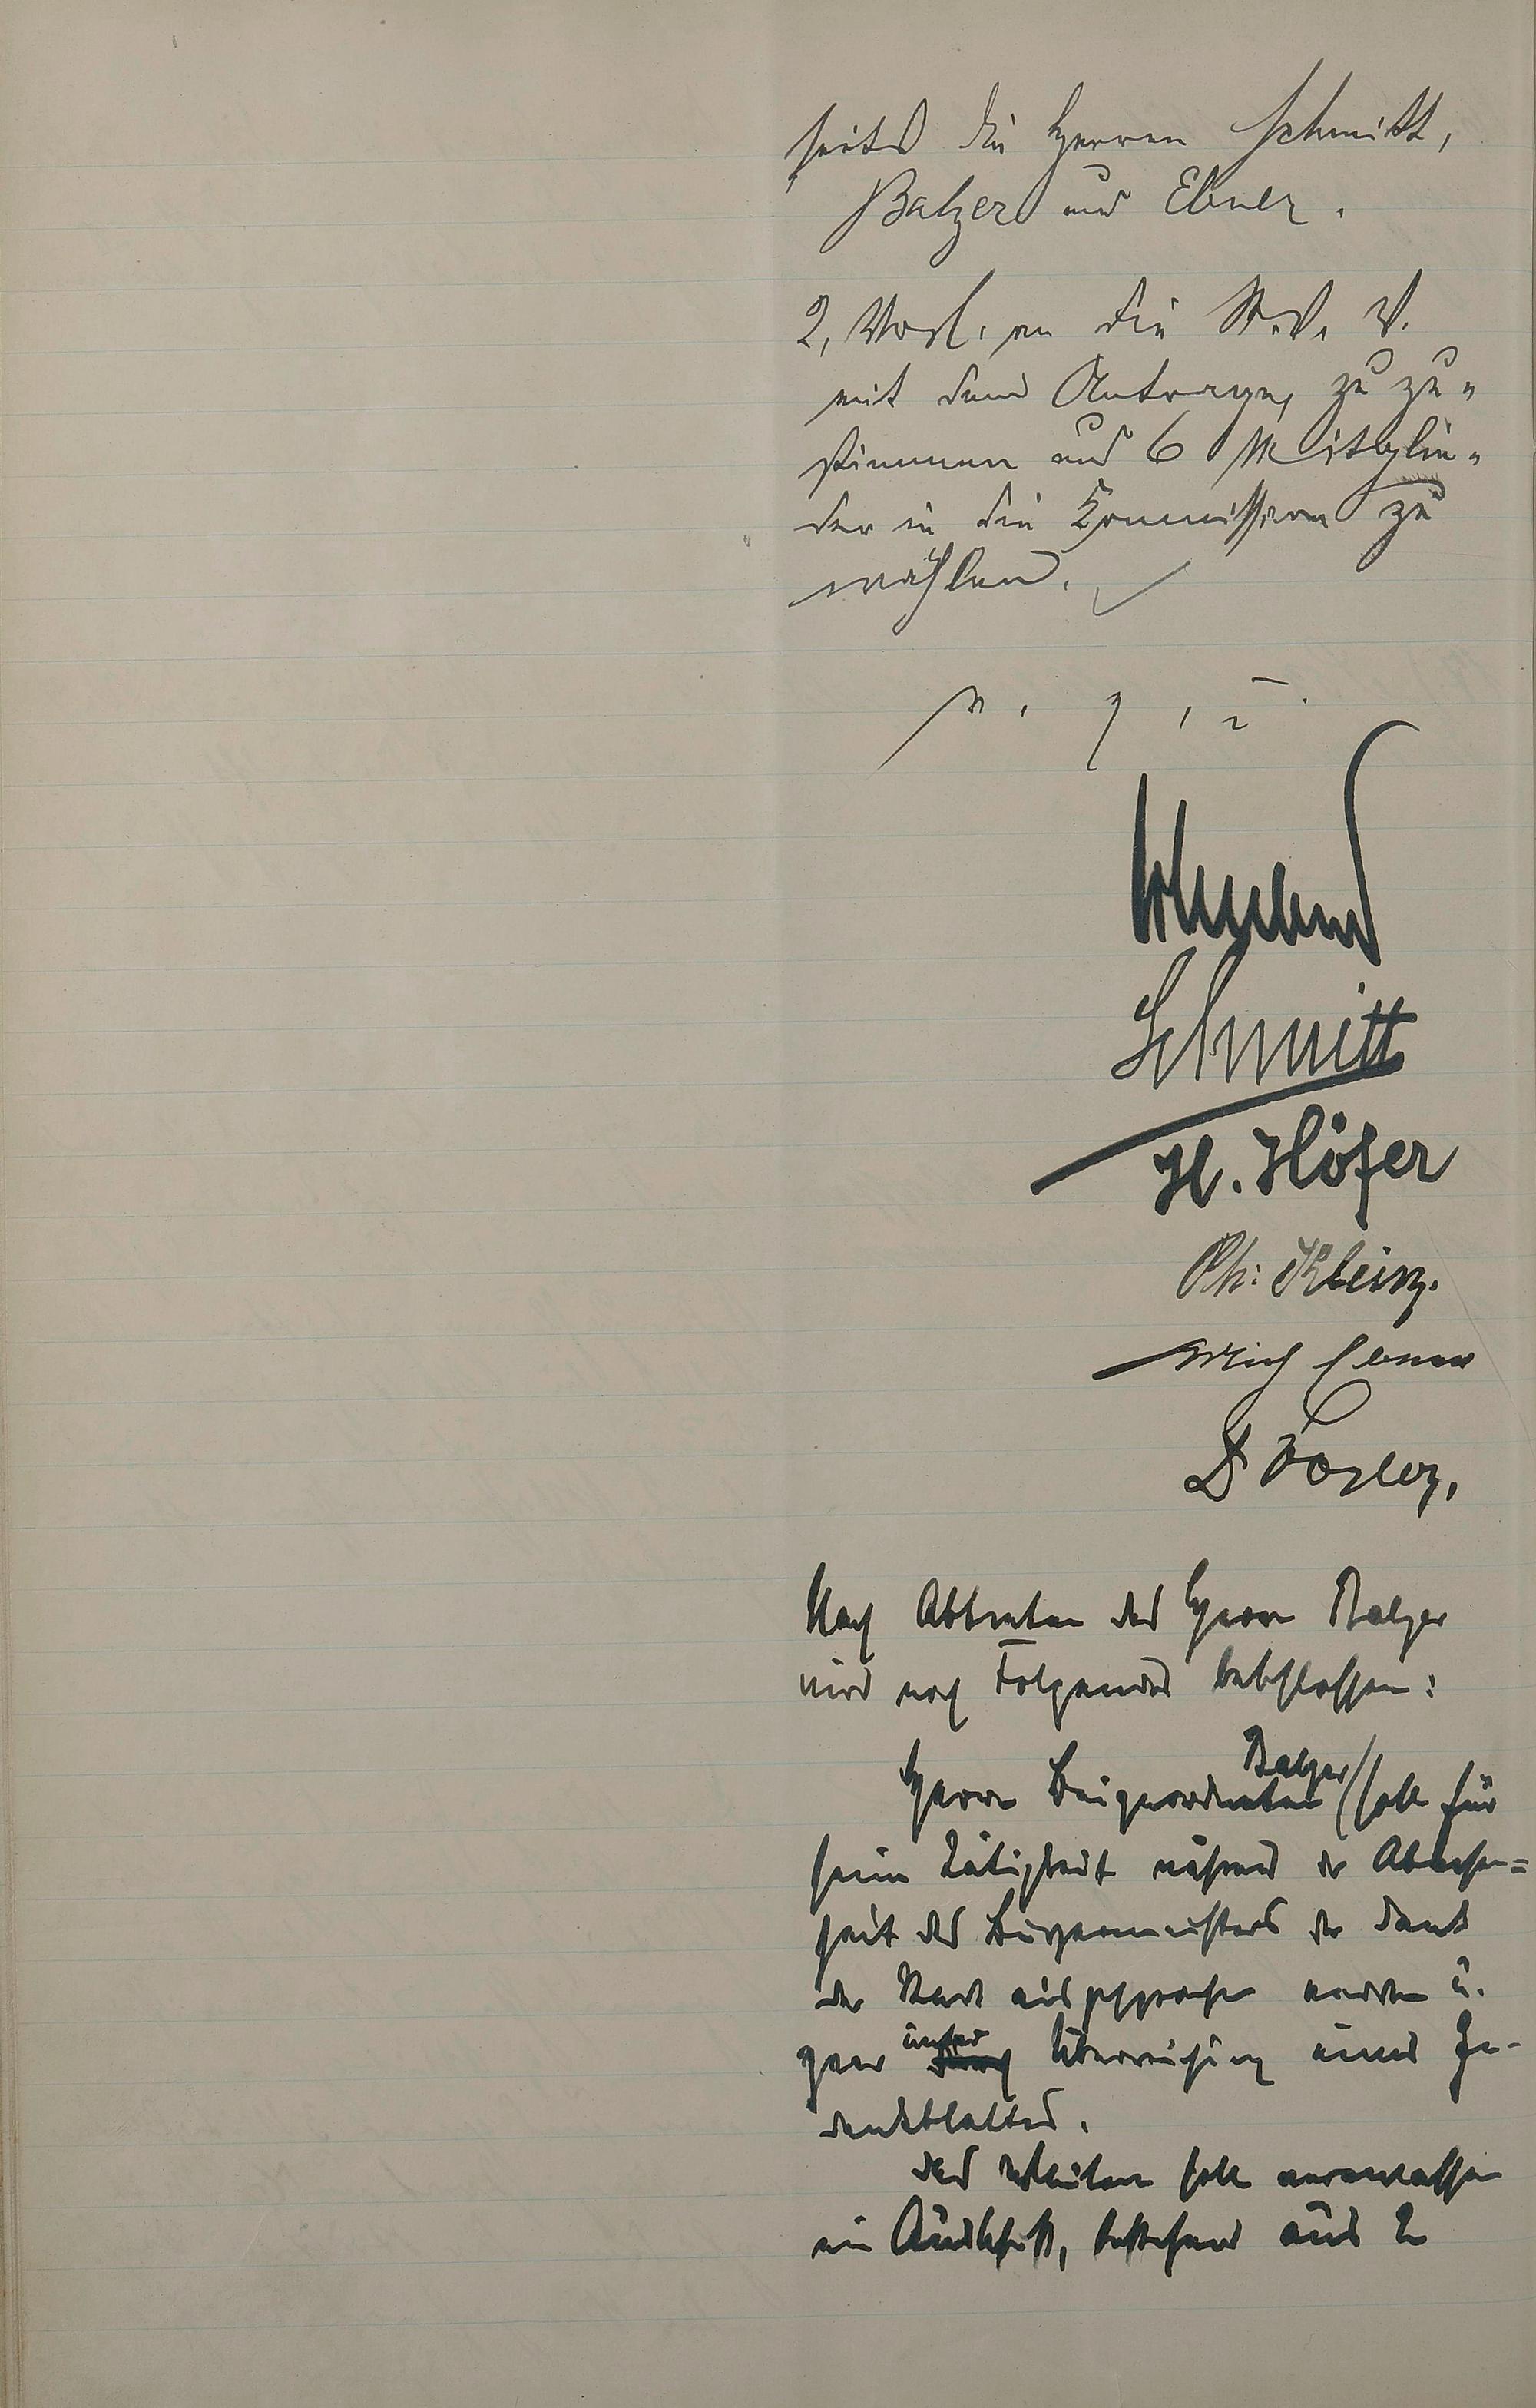 seits die Herren Schmitt,
Balzer und Ebner.
2, Vorl. an die St. V. V.
mit dem Antrage, zu zu-
stimmen und 6 Mitglie-
der in die Kommission zu
wählen.
v. g. u.
Schmitt
H. Höfer
Ph. Kleinz.
Nach Abtreten des Herrn Balzer
wird noch Folgendes beschlossen:
Herrn Beigeordneten Balzer soll für
seine Tätigkeit während der Abwesen=
heit des Bürgermeisters der Dank
der Stadt ausgesprochen werden u.
zwar unter Überreichung eines Ge-
denkblattes.
Das Weitere soll veranlassen
ein Ausschuß, bestehend aus den